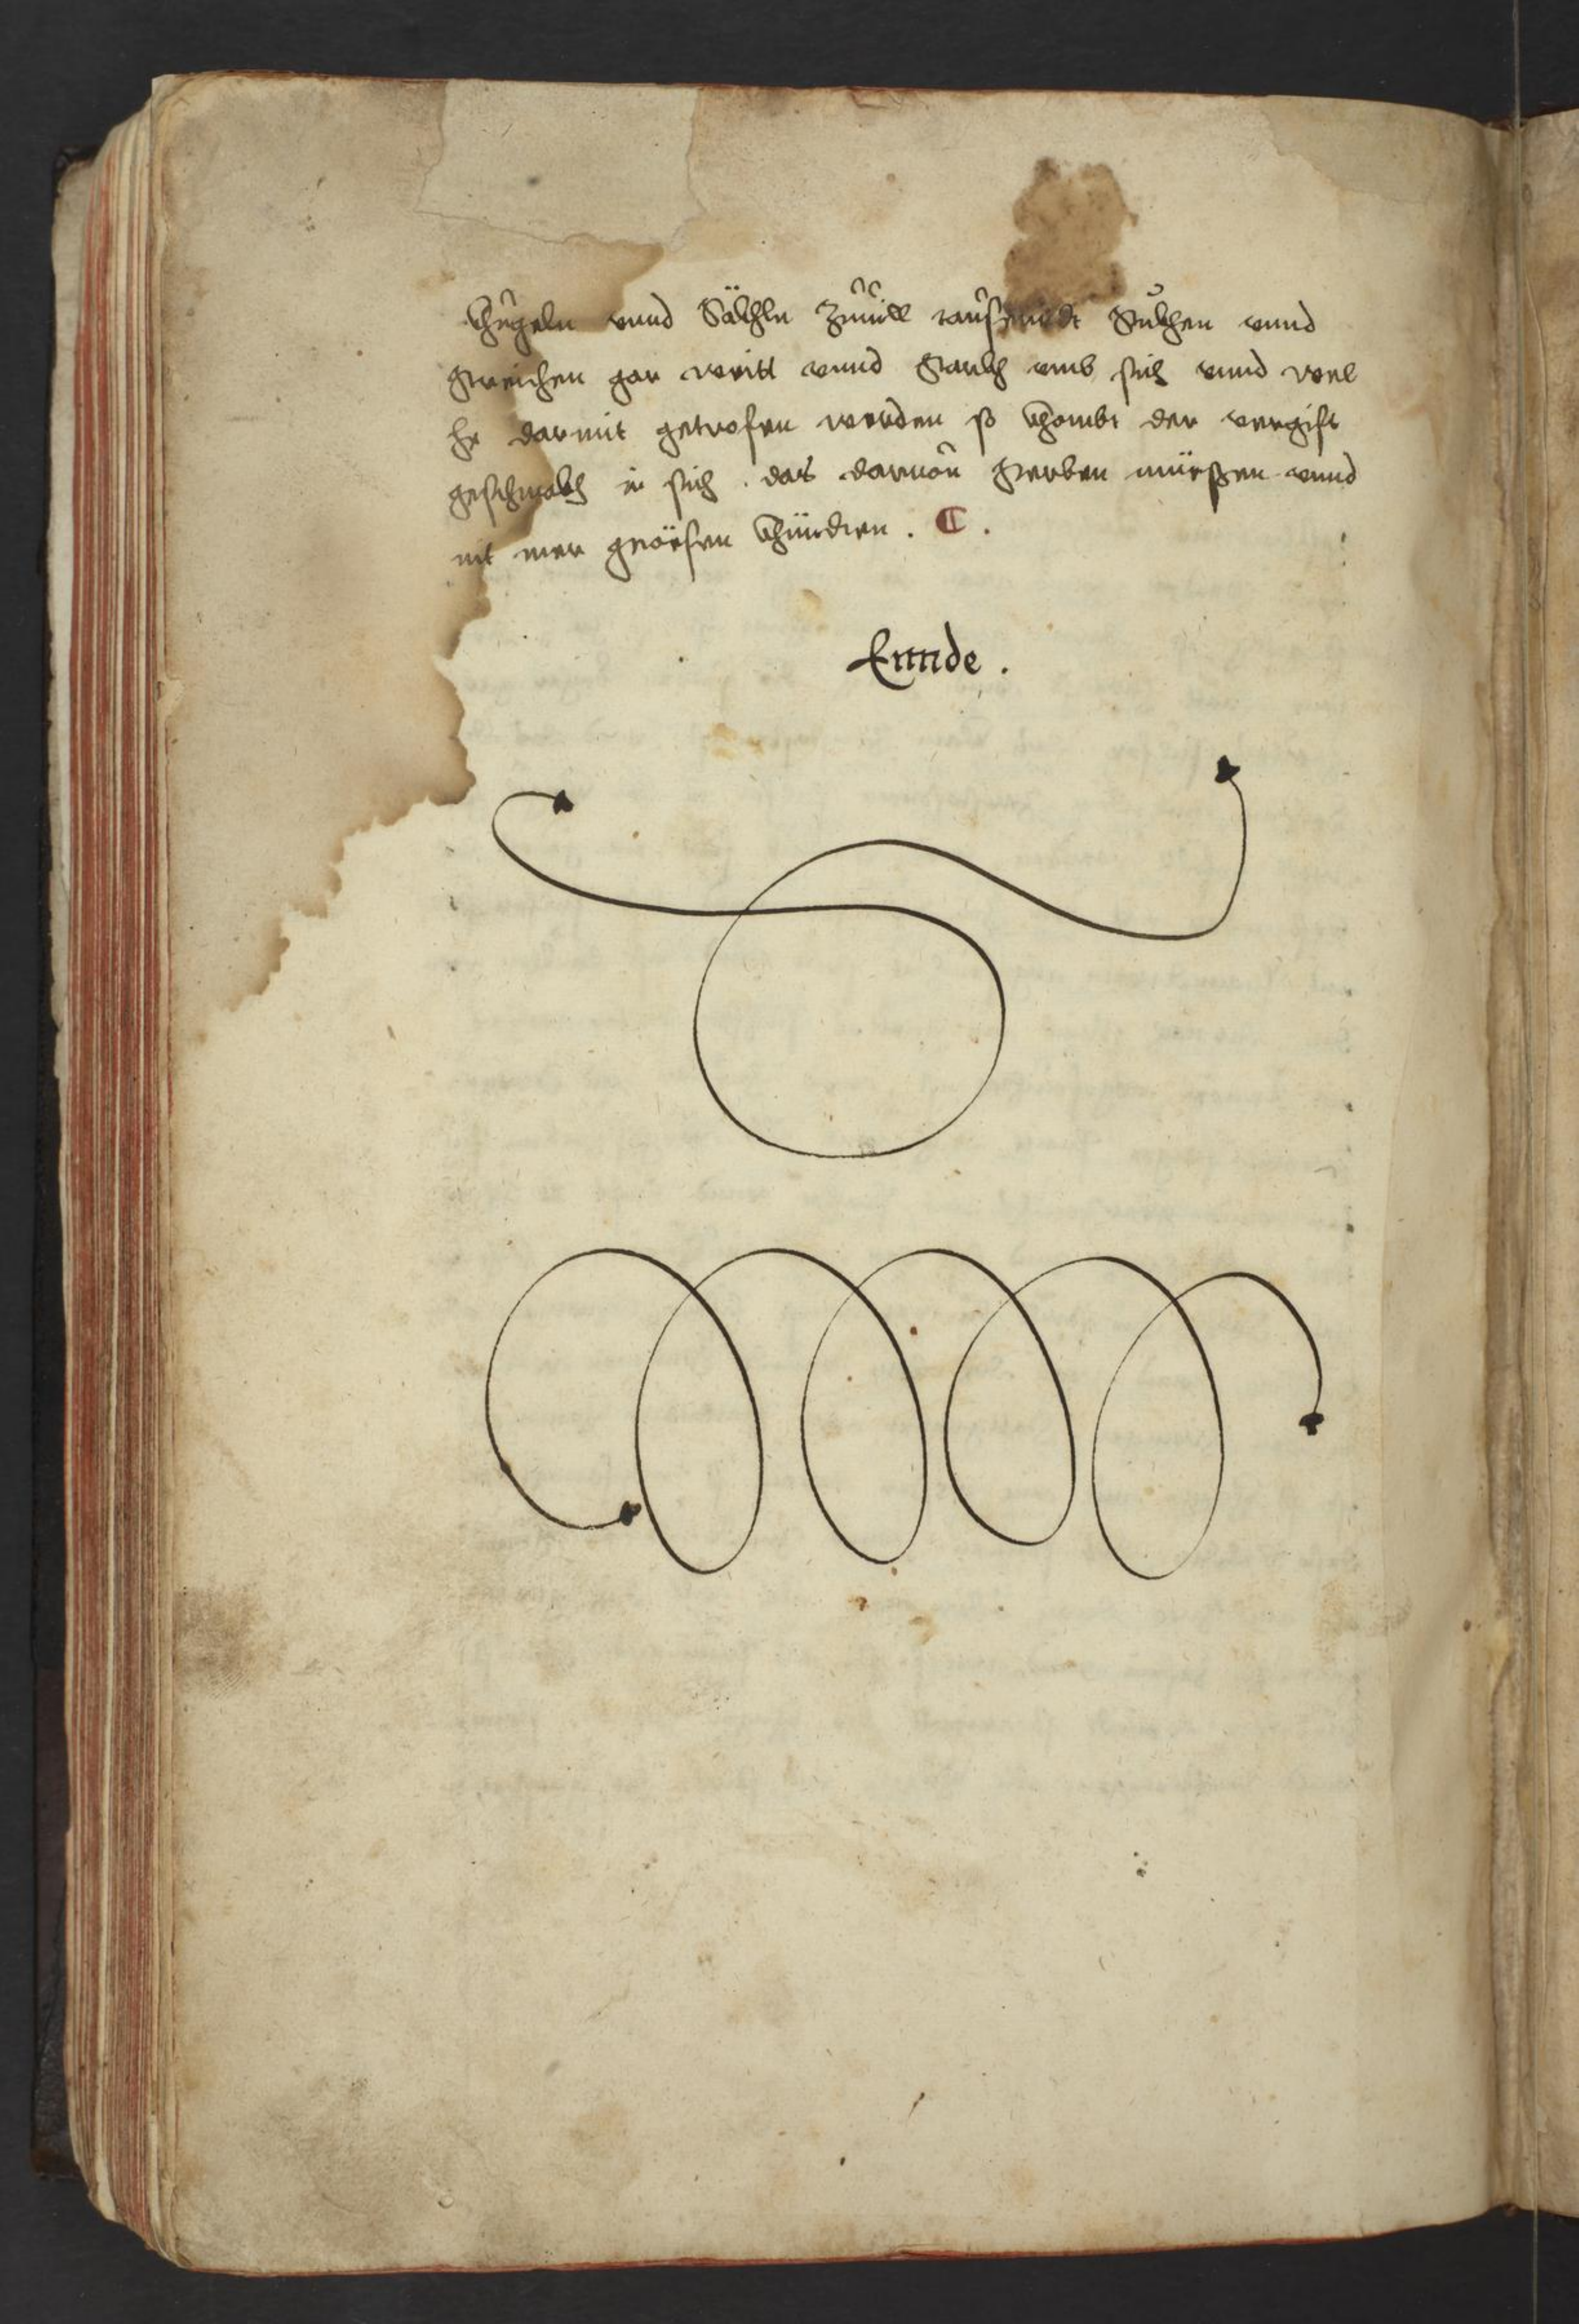 khugeln vnnd Säckhln Zuuill tausenndt Stuckhen vnnd
streichen gar weitt vnnd starckh vmb sich vnnd wel
he darmit getrofen werden so khombt der vergift
geschmackh in sich . das daruon sterben müessen vnnd
nit mer genösen khündten . C .
Ennde .